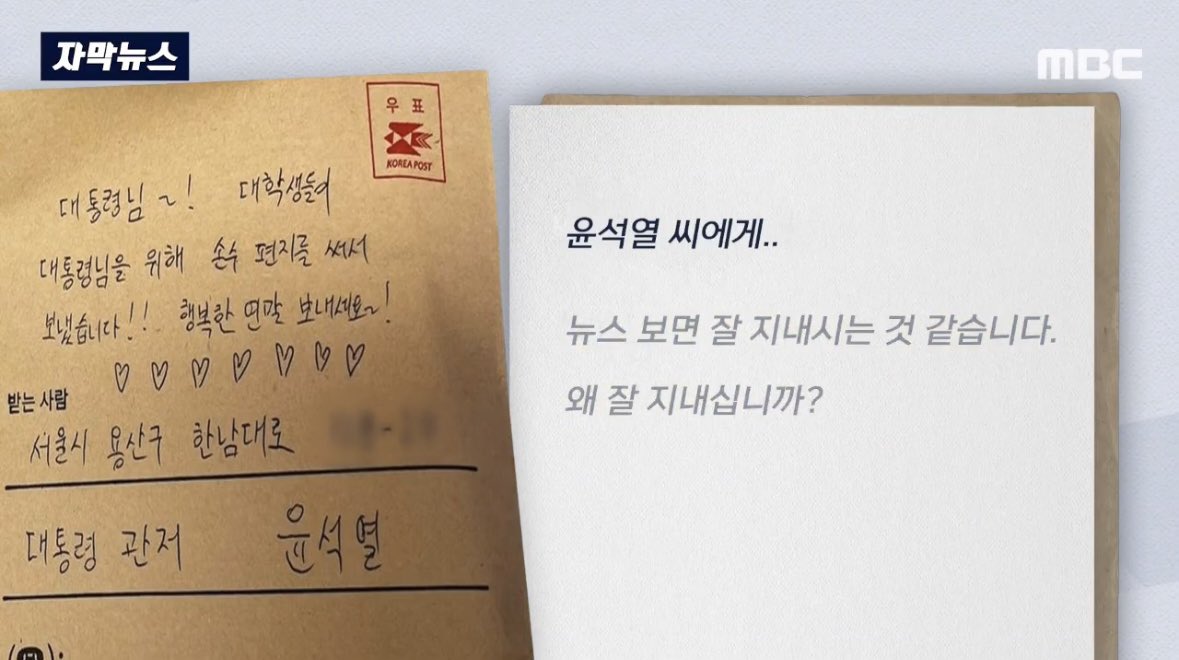 자막뉴스
MBC
우 표
KOREA POST
대통령님~! 대학생들이
대통령님을 위해 손수 편지를 써서
보냈습니다!! 행복한 연말 보내세요~!
♡ ♡ ♡ ♡ ♡ ♡ ♡
받는 사람
서울시 용산구 한남대로
대통령 관저 윤석열
윤석열 씨에게..
뉴스 보면 잘 지내시는 것 같습니다.
왜 잘 지내십니까?